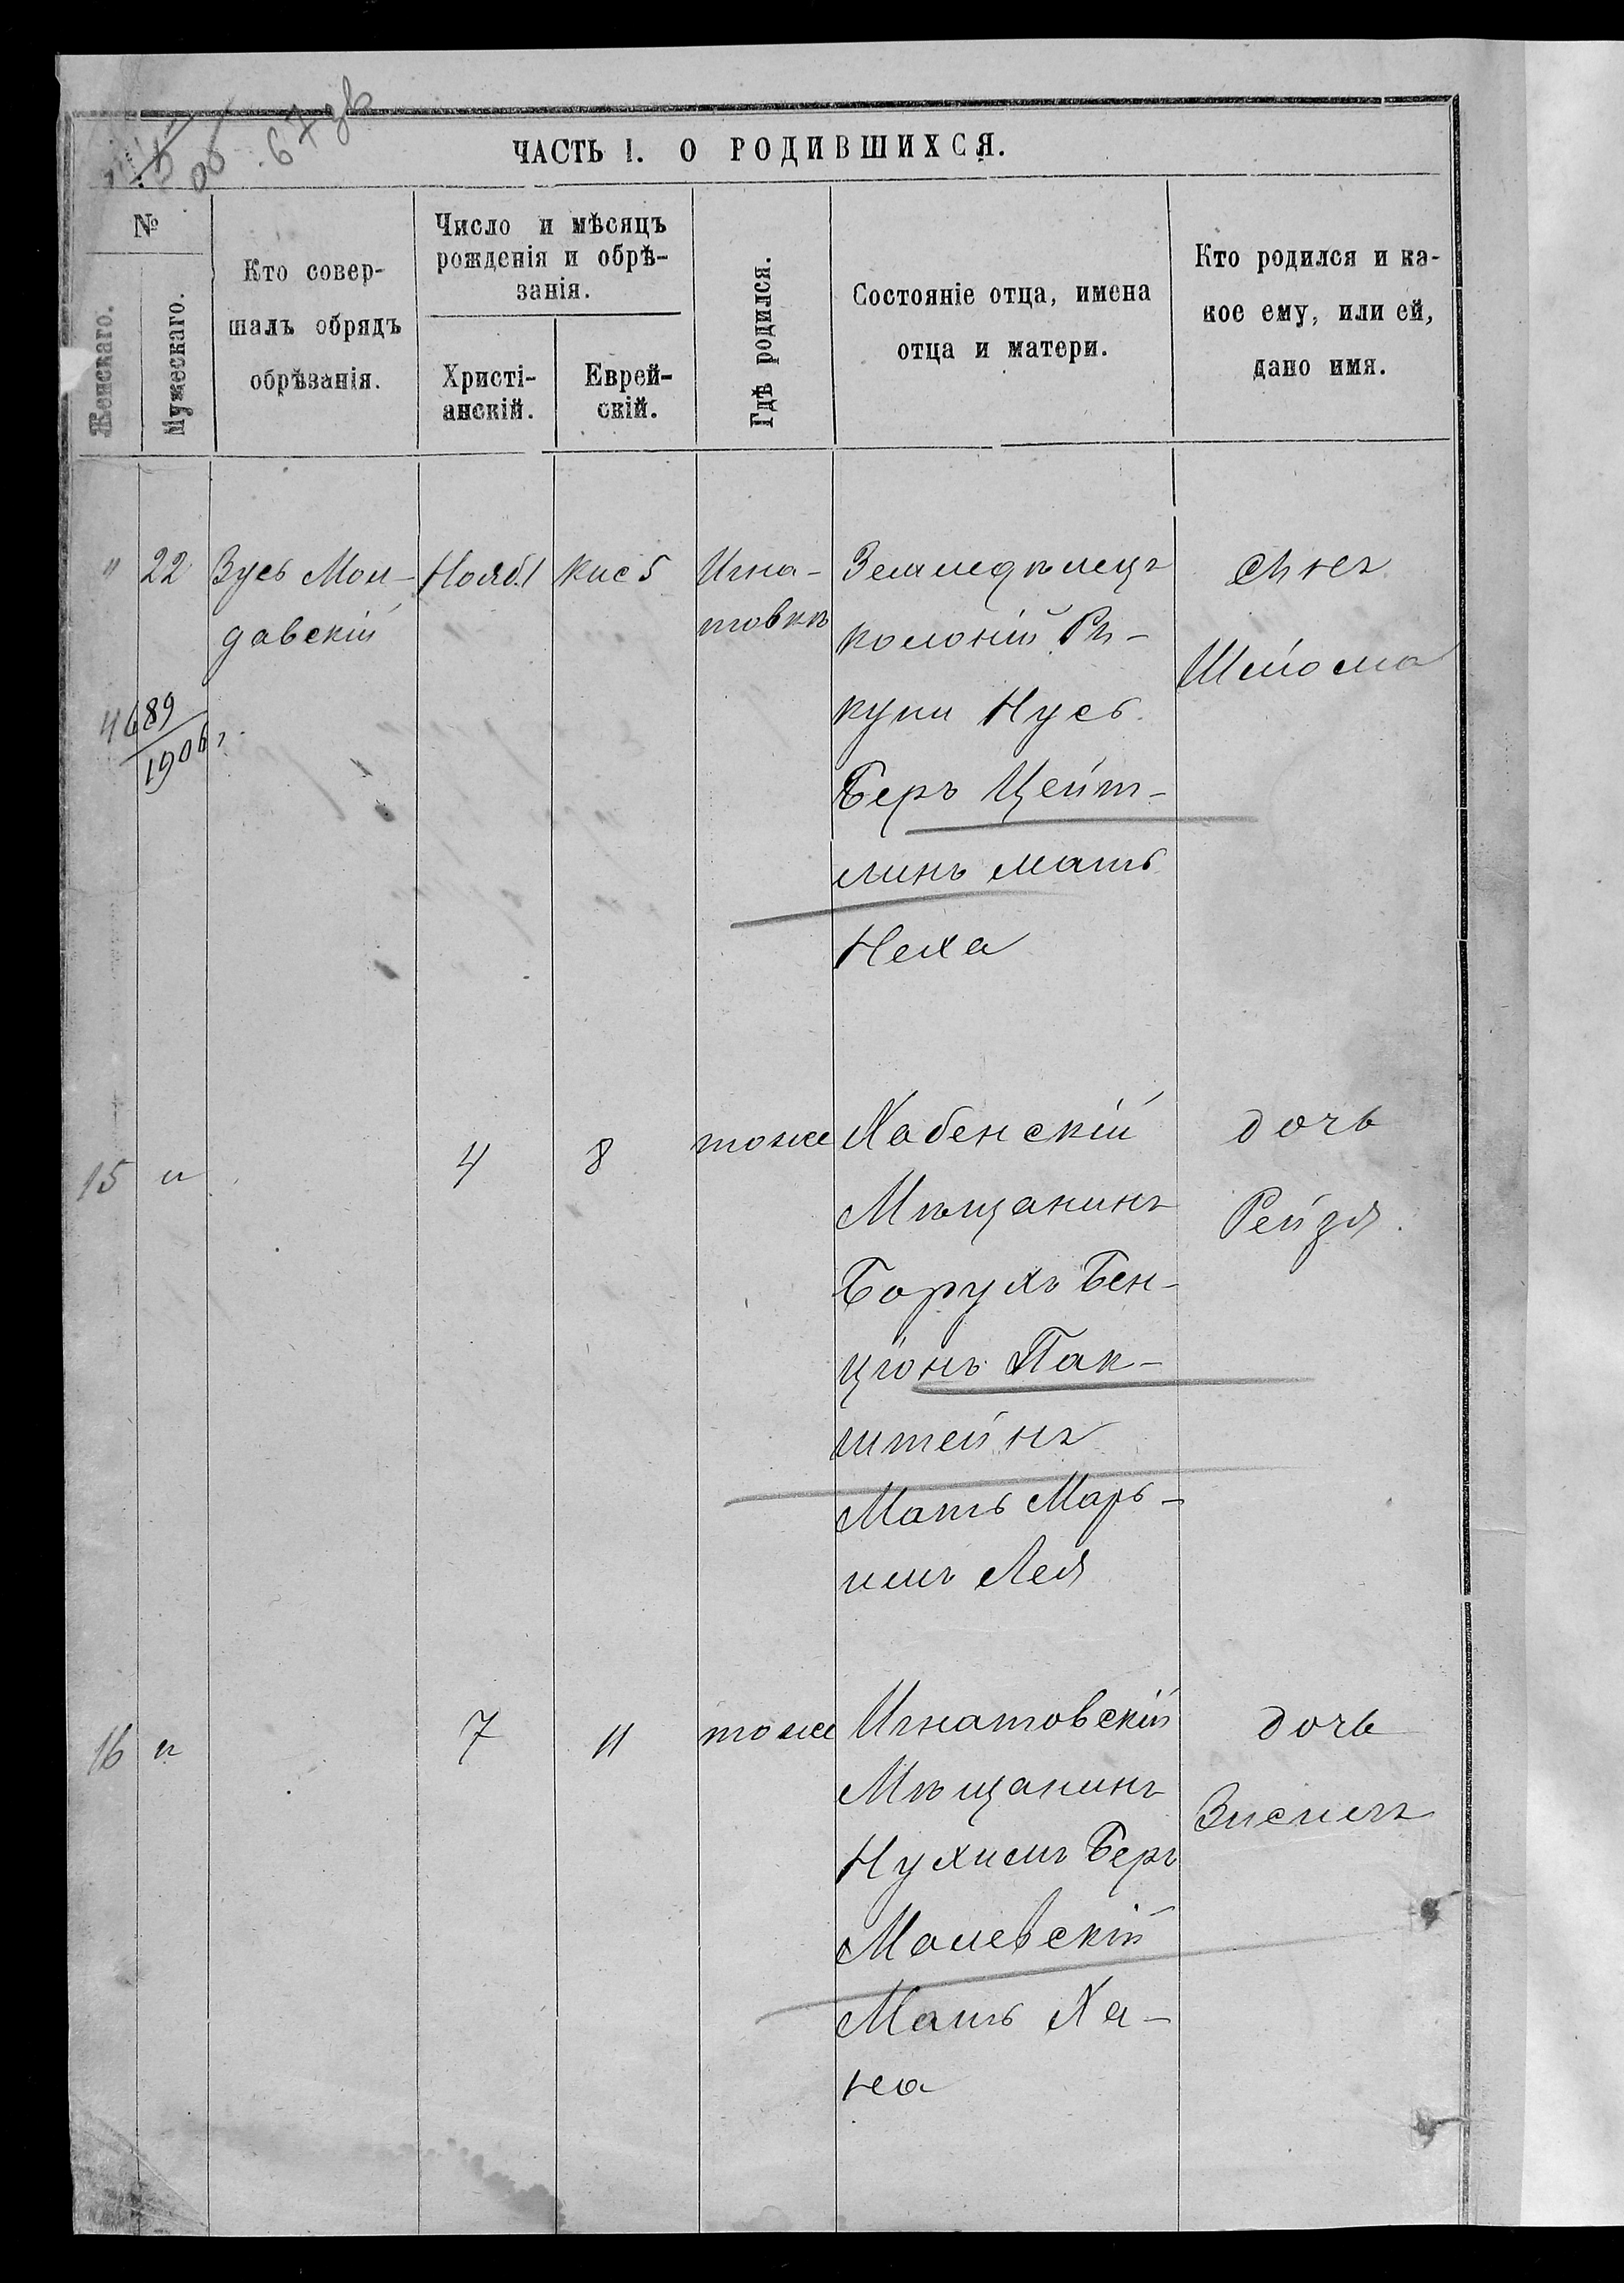 об. 67 зв
ЧАСТЬ I. О РОДИВШИХСЯ.
№
Женскаго.
Мужескаго.
Кто совер-
шалъ обрядъ
обрѣзанія.
Число и мѣсяцъ
рожденія и обрѣ-
занія.
Христі-
анскій.
Еврей-
скій.
Гдѣ родился.
Состояніе отца, имена
отца и матери.
Кто родился и ка-
кое ему, или ей,
дано имя.
" 22 Зусь Мол-
давскій
4689
1906 г.
Нояб. 1
Кис 5
Игна-
товкѣ
Земледѣлецъ
колоній Рѣ-
купи Нусъ
Беръ Цейт-
линъ мать
Неха
Сынъ
Шлома
15 "
4
8
тоже
Хабенскій
Мѣщанинъ
Борухъ Бен-
ціонъ Пак-
штейнъ
Мать Марь-
имъ Лея
дочь
Рейзя.
16 "
7
11
тоже
Игнатовскій
Мѣщанинъ
Нухимъ Беръ
Малевскій
Мать Ха-
на
дочь